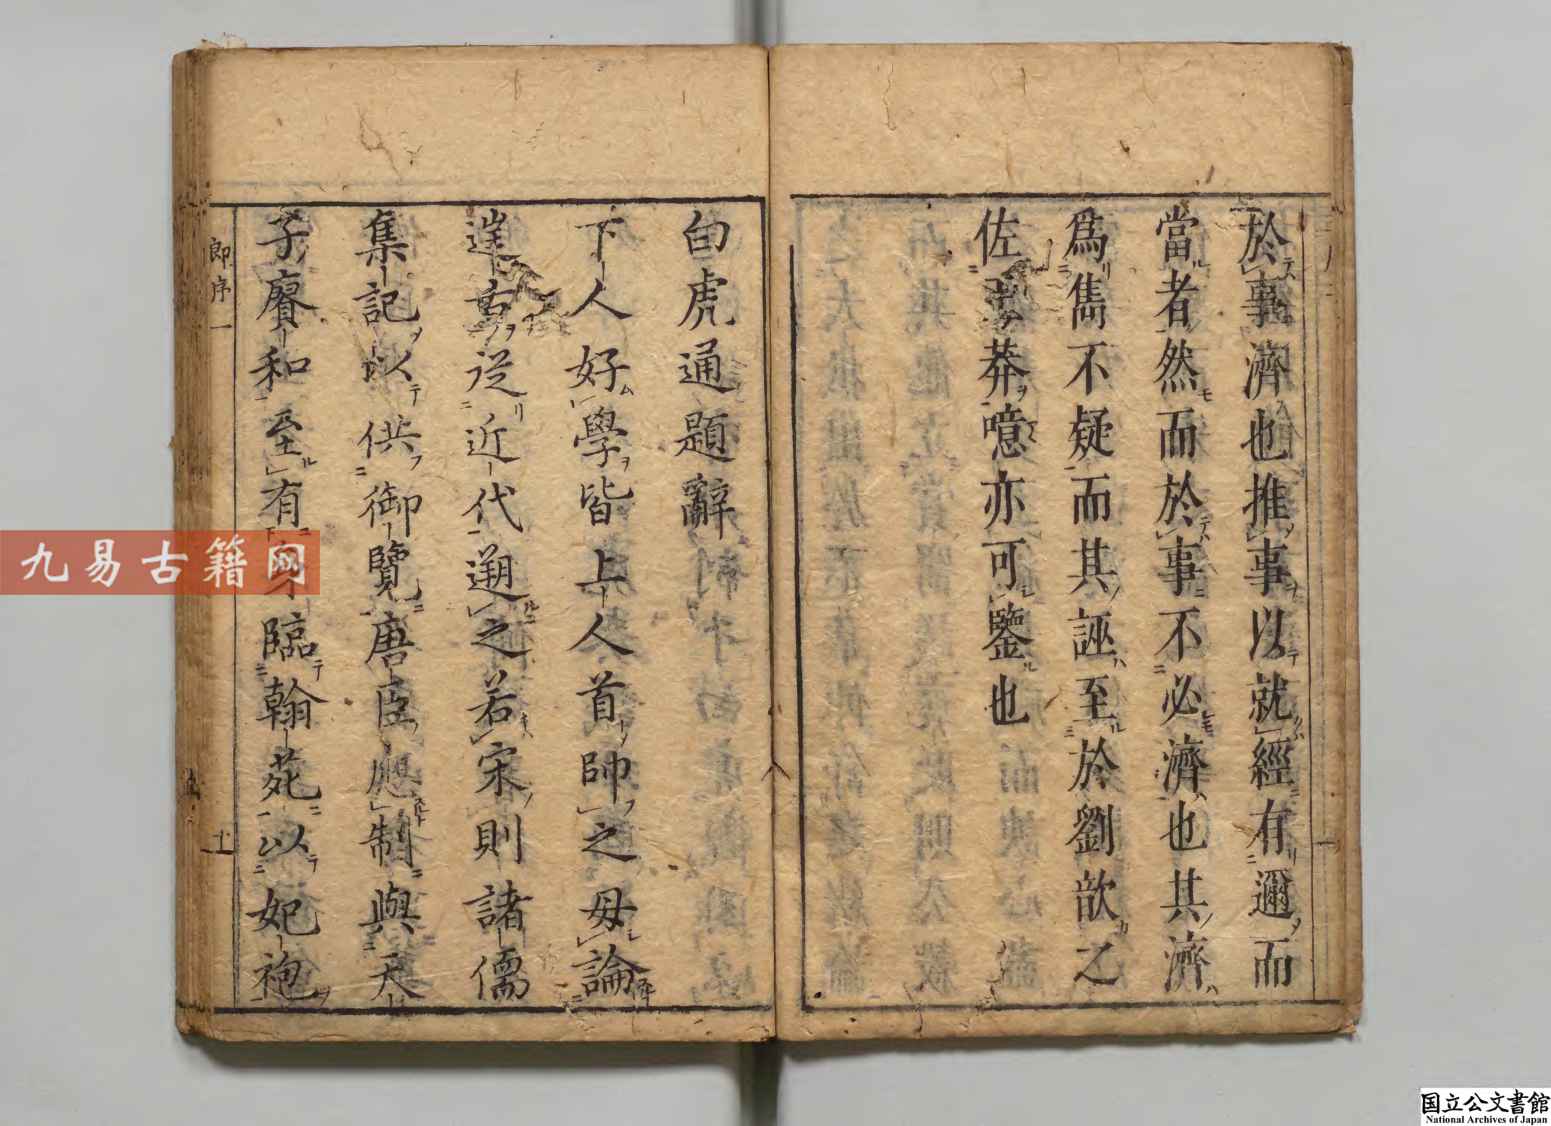 於事濟也推事以就經有邇而
當者然而於事不必濟也其濟
爲雋不疑而其誣至於劉歆之
佐莽噫亦可鑒也
白虎通題辭
下人好學皆上人首帥之毋論
邃古從近代遡之若宋則諸儒
集記以供御覽唐臣應制與天
子賡和至有臨翰苑以妃袍
郎序一
九易古籍网
国立公文書館
National Archives of Japan